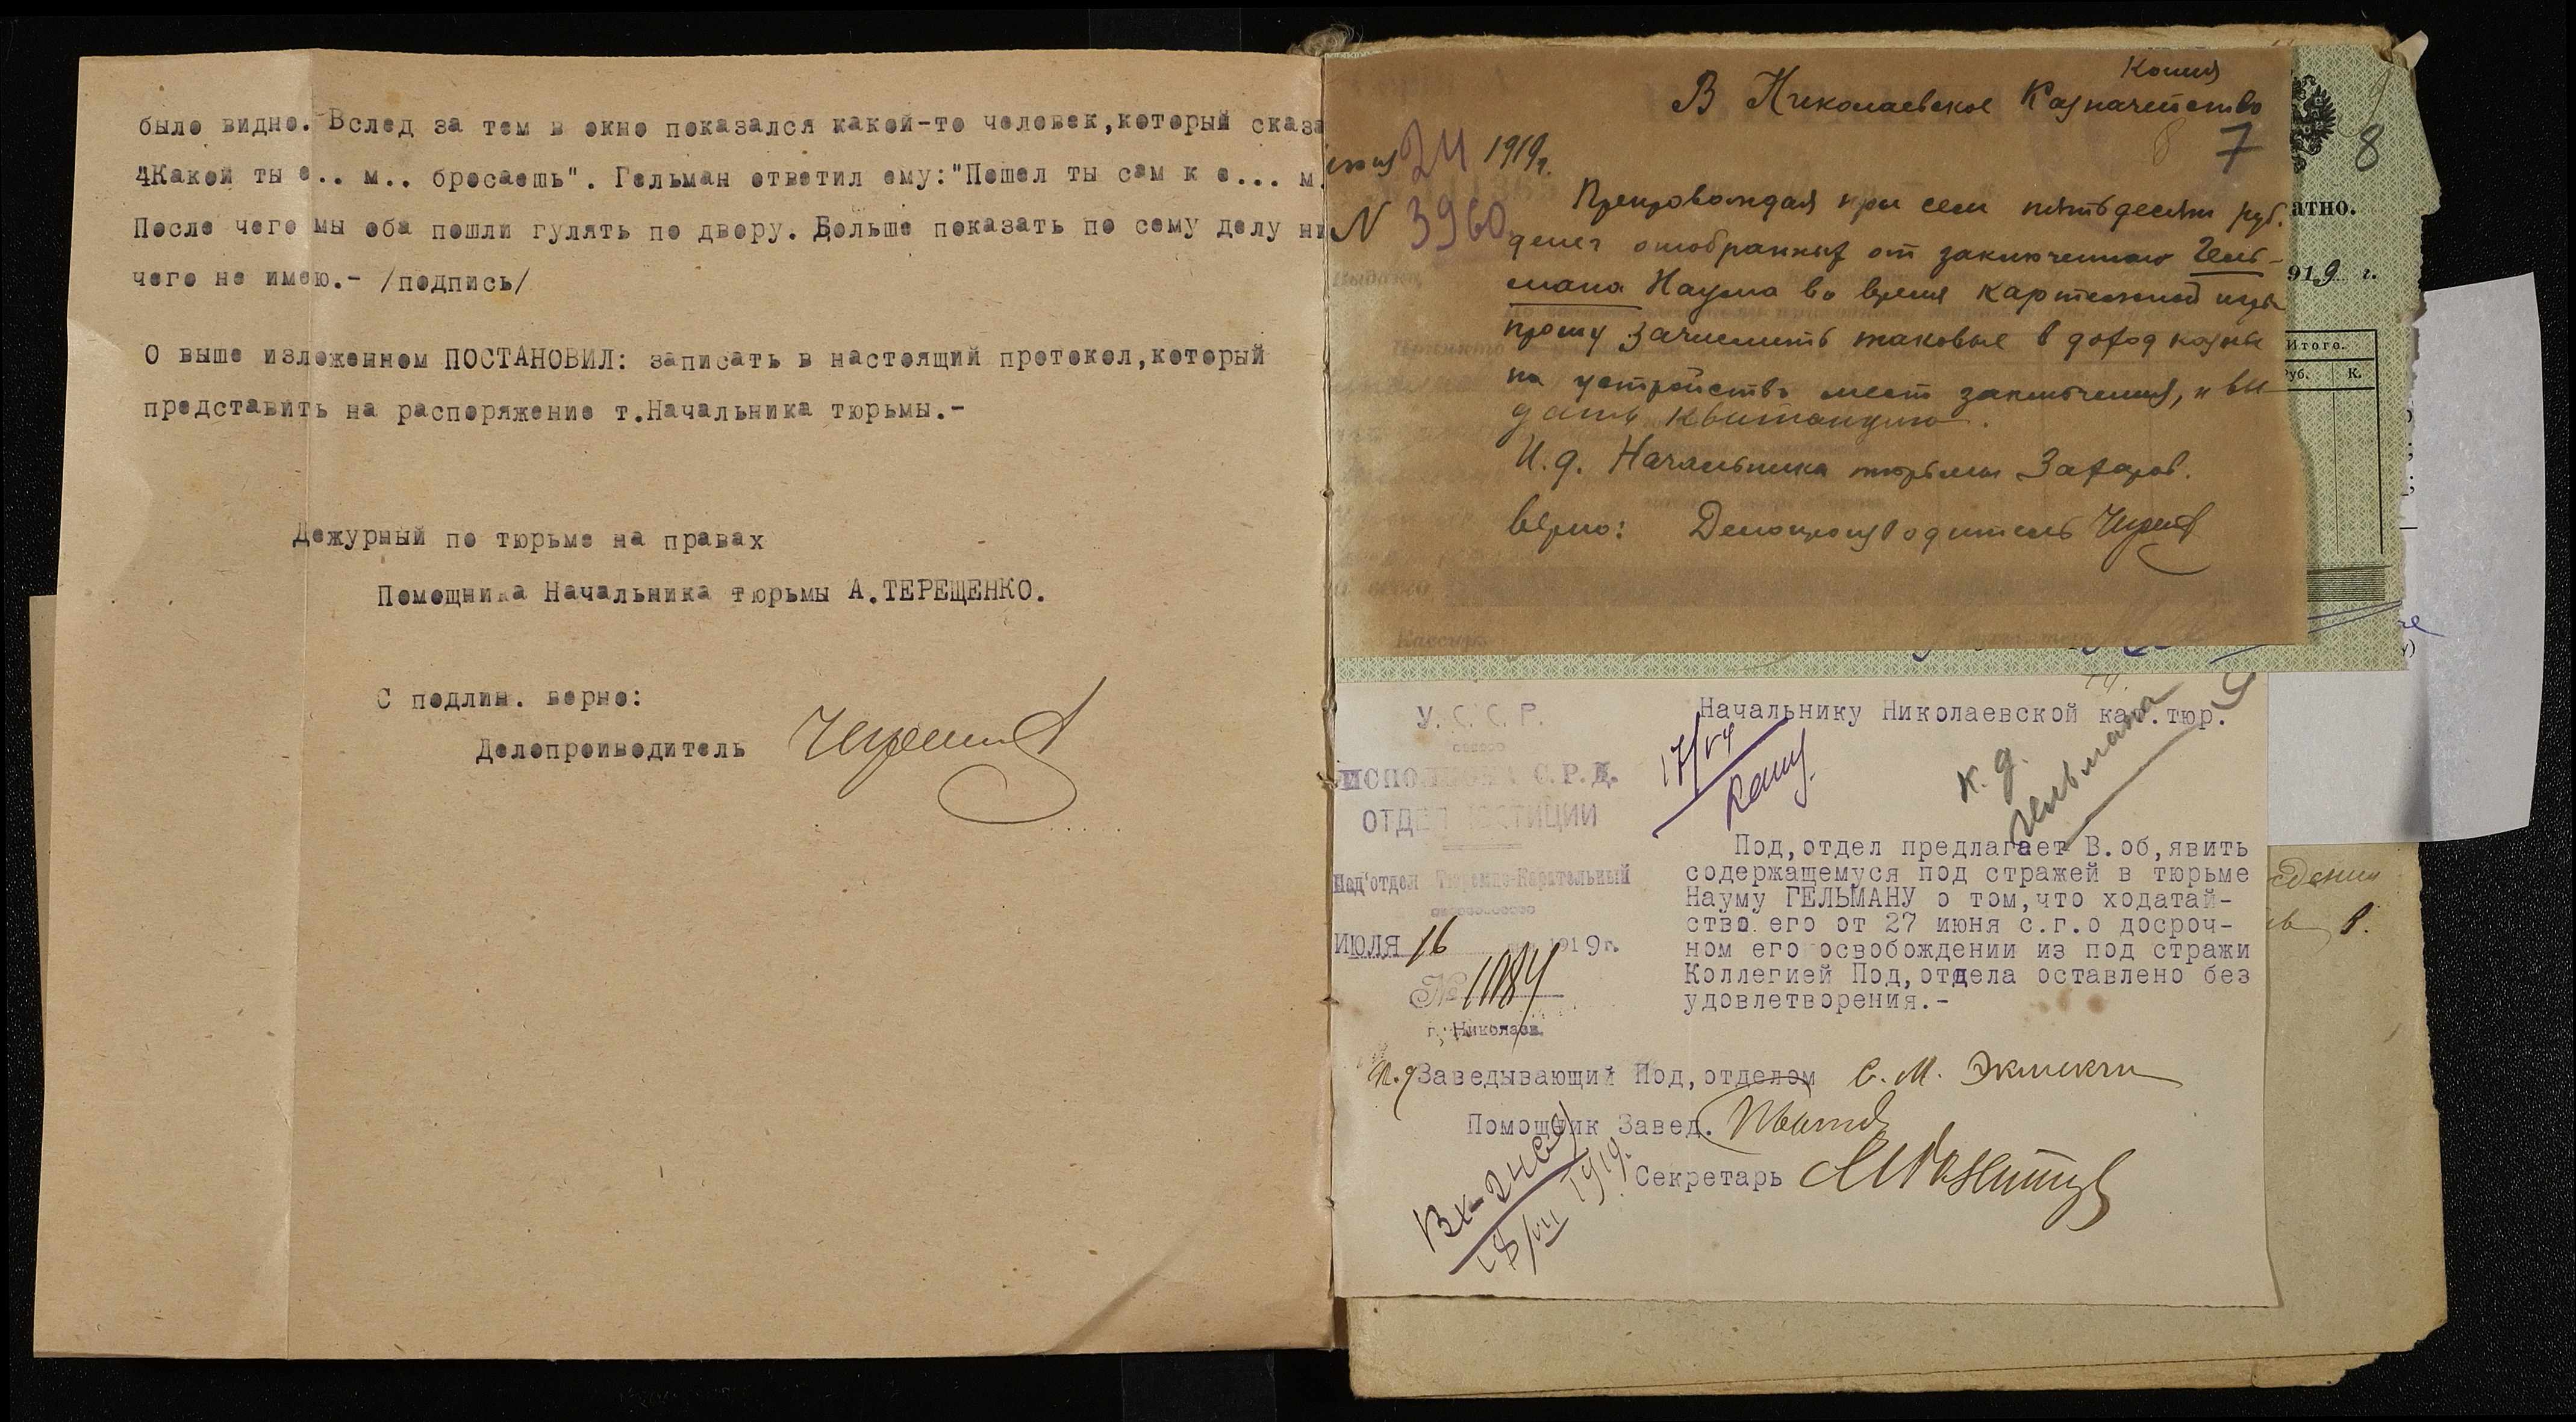 было видно. Вслед за тем в окно показался какой-то человек,который сказа
"Какой ты е.. м.. бросаешь". Гельман ответил ему:"Пошел ты сам к е... м.
После чего мы оба пошли гулять по двору. Больше показать по сему делу ни
чего не имею.- /подпись/
О выше изложенном ПОСТАНОВИЛ: записать в настоящий протокол,который
представить на распоряжение т.Начальника тюрьмы.-
Дежурный по тюрьме на правах
Помощника Начальника тюрьмы А.ТЕРЕЩЕНКО.
С подлин. верно:
Делопроизводитель
Копия
В Николаевское Казначейство
7
8
24 1919г.
N 3960
Препровождая при сем пятьдесят руб.
денег отобранных от заключенного Гель-
мана Наума во время картежной игры
прошу зачислить таковые в доход казны
на устройство мест заключения, и вы
дать квитанцию.
И.д. Начальника тюрьмы Захаров.
Верно: Делопроизводитель
атно.
919 г.
Итого.
Руб. К.
Кассиръ
У. С. С. Р.
ИСПОЛКОМА С.Р.Д.
ОТДЕЛ ЮСТИЦИИ
Под'отдел Тюремно-Карательный
ИЮЛЯ 16 1919г.
№ 11084
г. Николаев.
Начальнику Николаевской кат.тюр.
17/VII
К. д.
Гельмана
Под,отдел предлагает В.об,явить
содержащемуся под стражей в тюрьме
Науму ГЕЛЬМАНУ о том,что ходатай-
ство его от 27 июня с.г.о досроч-
ном его освобождении из под стражи
Коллегией Под,отдела оставлено без
удовлетворения.-
И.д Заведывающий Под,отделом
Помощник Завед.
Секретарь
18/VII 1919.